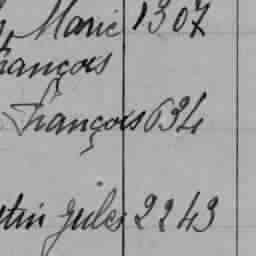 Marie 1307
François
François 634
Jules 2243